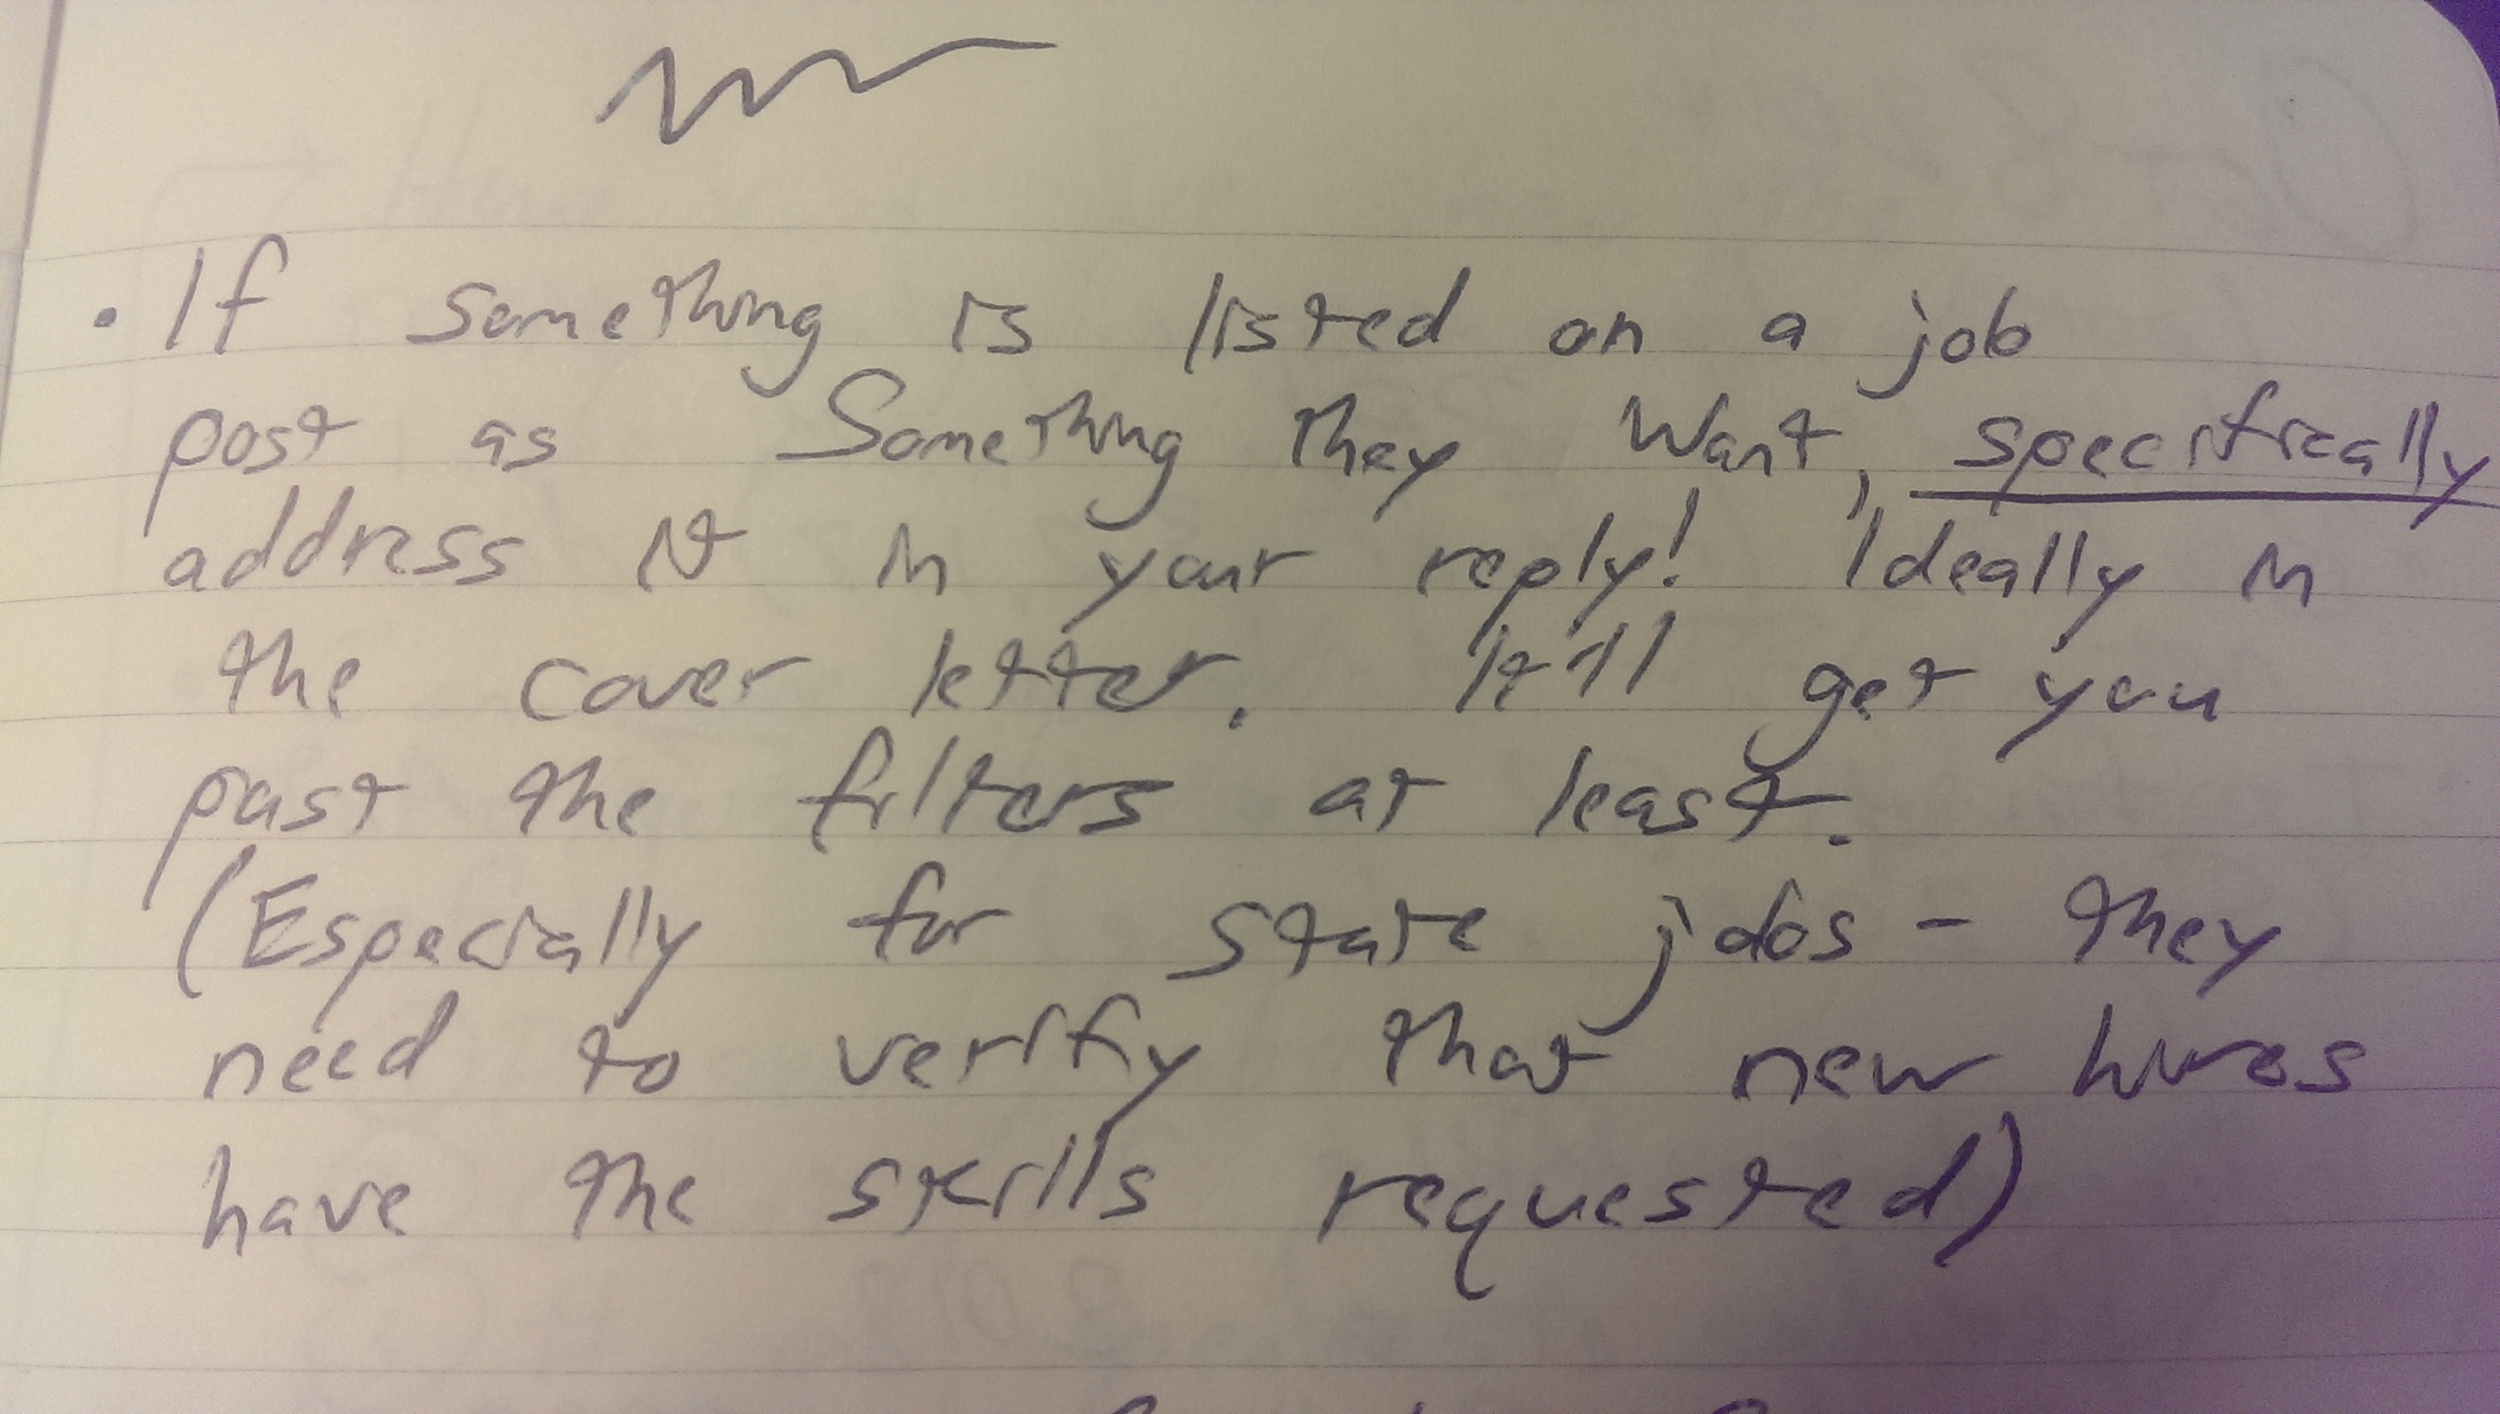 • If something is listed on a job
post as Something they want, specifically
address it in your reply! Ideally in
the cover letter. It'll get you
past the filters at least.
(Especially for state jobs - they
need to verify that new hires
have the skills requested)